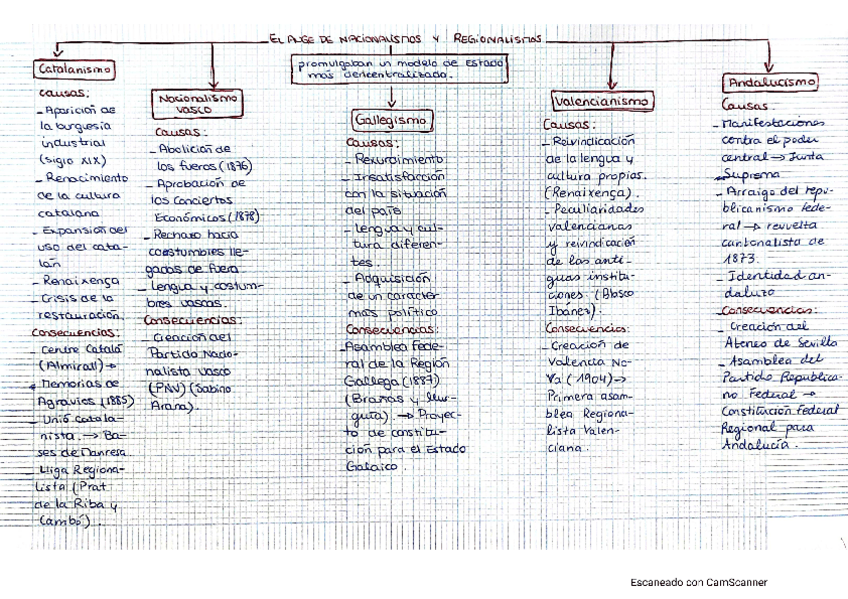 EL AUGE DE NACIONALISMOS Y REGIONALISMOS
promulgaban un modelo de Estado
más descentralizado.
Catalanismo
Causas:
- Aparición de
la burguesía
industrial
(siglo XIX)
- Renacimiento
de la cultura
catalana
- Expansión del
uso del cata-
lán
- Renaixença
- Crisis de la
restauración.
Consecuencias:
- Centre Català
(Almirall) →
Memorias de
Agravios (1885)
- Unió catala-
nista. → Ba-
ses de Manresa.
- Lliga Regiona-
lista (Prat
de la Riba y
Cambó).
Nacionalismo
vasco
Causas:
- Abolición de
los fueros (1876)
- Aprobación de
los Conciertos
Económicos (1878)
- Rechazo hacia
costumbres lle-
gadas de fuera.
- Lengua y costum-
bres vascas.
Consecuencias:
- Creación del
Partido Nacio-
nalista Vasco
(PNV) (Sabino
Arana).
Gallegismo
Causas:
- Rexurdimiento
- Insatisfacción
con la situación
del país
- Lengua y cul-
tura diferen-
tes.
- Adquisición
de un carácter
más político
Consecuencias:
- Asamblea Fede-
ral de la Región
Gallega (1887)
(Brañas y Mur-
guía). → Proyec-
to de constitu-
ción para el Estado
Galaico.
Valencianismo
Causas:
- Reivindicación
de la lengua y
cultura propias.
(Renaixença).
- Peculiaridades
valencianas
y reivindicación
de las anti-
guas institu-
ciones (Blasco
Ibánez).
Consecuencias:
- Creación de
Valencia No-
va (1904) →
Primera asam-
blea Regiona-
lista Valen-
ciana.
Andalucismo
Causas.
- Manifestaciones
contra el poder
central → Junta
Suprema
- Arraigo del repu-
blicanismo fede-
ral → revuelta
cantonalista de
1873.
- Identidad an-
daluza
Consecuencias:
- Creación del
Ateneo de Sevilla
- Asamblea del
Partido Republica-
no Federal →
Constitución Federal
Regional para
Andalucía.
Escaneado con CamScanner